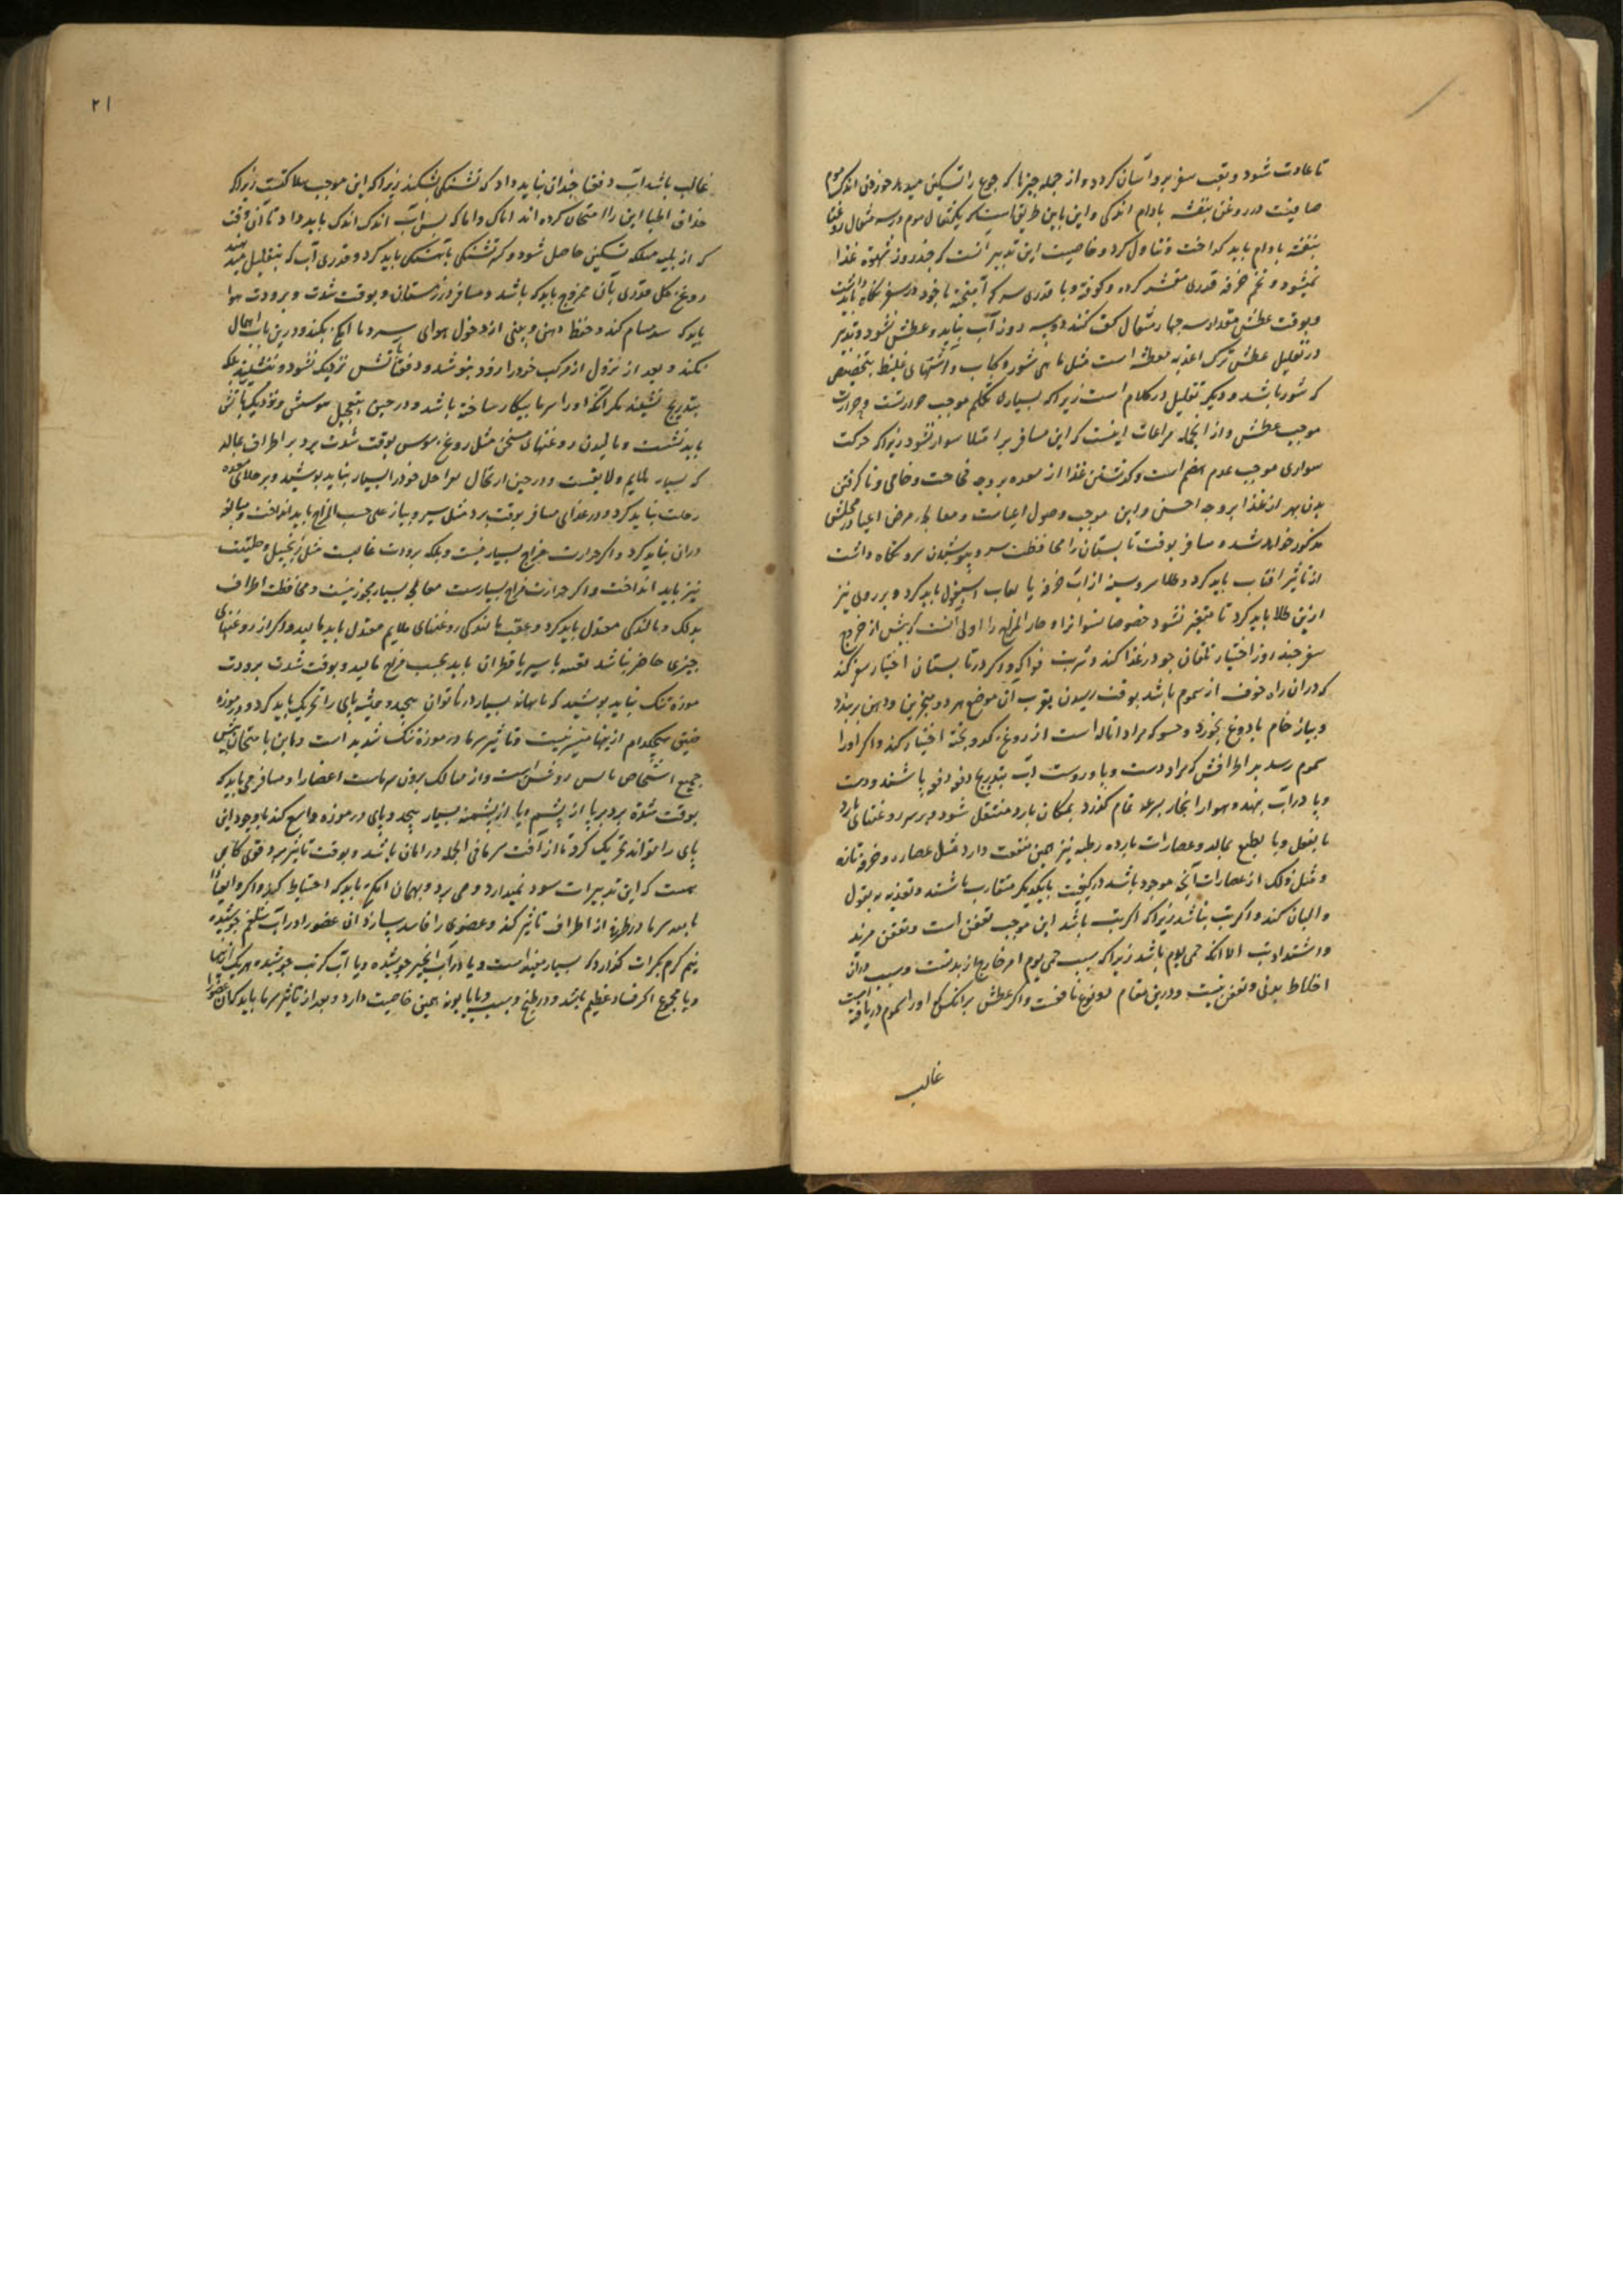 تا عادت شود و تعب سفر برو آسان کردد و از جمله چیزها که جوع را تسکین میدهد خوردن اندک موم
صافیست در روغن بنفشه بادام اندکی و این باین طریق است که یکمثقال موم در سه مثقال روغن
بنفشه بادام باید کداخت و تناول کرد و خاصیت این تدبیر آنست که چند روز شهوة غذا
نمیشود و تخم خرفه قدری مقشر کرده و کوفته و با قدری سرکه آمیخته با خود در سفر نکاه باید داشت
و بوقت عطش مقدار سه چهار مثقال کف کنند دو سه روز آب نیابد و عطش نشود و تدبیر
در تقلیل عطش ترک اغذیه معطشه است مثل ماهی شور و کباب و اشتهای غلیظ بتخصیص
که شور باشد و دیکر تقلیل در کلام است زیرا که بسیاری تکلم موجب حرارتست و حرارت
موجب عطش و از انجمله مراعات اینست که این مسافر بر امتلا سوار نشود زیرا که حرکت
سواری موجب عدم هضم است و کذشتن غذا از معده بر وجه فجاجت و خامی و نا کرفتن
بدن بهره از غذا بر وجه احسن و این موجب وصول اعیاست و معالجه مرض اعیا در محلش
مذکور خواهد شد و مسافر بوقت تابستان را محافظت سر و پوشیدن سر و نکاه داشت
از تاثیر افتاب باید کرد و طلا سر و سینه از آب خرفه یا لعاب اسپغول باید کرد و بر روی نیز
ازین طلا باید کرد تا متغیر نشود خصوصا نسوانرا و حار المزاج را اولی آنست که پیش از خروج
سفر چند روز اختیار تلقان جو در غذا کند و شربت فواکه و اکر در تابستان اختیار سفر کند
که در ان راه خوف از سموم باشد بوقت رسیدن بقرب آن موضع هر دو منخرین و دهن بربندد
و پیاز خام با دوغ بخورد و حسو که مراد اتاله است از روغن کدو پخته اختیار کند و اکر او را
سموم رسد بر اطرافش که مراد دست و پا و روست آب بتدریج دفعه دفعه پاشند و دست
و پا در آب نهد و هوا را انجا بسرعه تمام کذرد بمکان بارد منتقل شود و بر سر روغنهای بارد
بالفعل و یا بطبع بمالد و عصارات بارده رطبه نیز همین منفعت دارد مثل عصاره خرفه تازه
و مثل ذلک از عصارات آنچه موجود باشد در کیفیت بایکدیکر متقارب باشند و تغذیه به بقول
و البان کند و اکر تب نباشد زیرا که اکر تب باشد این موجب تعفن است و تعفن مزید
و اشتداد تب الا انکه حمی یوم باشد زیرا که سبب حمی یوم امر خارج از بدنست و سبب دران
اخلاط بدنی و تعفن نیست و درین مقام ممنوع نافعست و اکر عطش بر انکس که او را سموم دریافته است
غالب
۲۱
غالب باشد آب دفعتا چندان نباید داد که تشنکی بشکند زیرا که این موجب هلاکتست زیرا که
حذاق اطبا این را امتحان کرده اند اما که پس آب اندک اندک باید داد تا آن وقت
که از بلیه مهلکه تسکین حاصل شود و کم تشنکی بآهستکی باید کرد و قدری آب که بتقلیل میدهند
روغن کل قدری بآن ممزوج باید که باشد و مسافر در زمستان و بوقت شدت و برودت هوا
باید که سد مسام کند و حفظ دهن و بینی از دخول هوای سرد بکند و درین باب اهمال
نکند و بعد از نزول از مرکب خود را زود بنوشد و دفعتا بآتش نزدیک نشود و ننشیند بلکه
بتدریج نشیند مکر آنکه او را سرما بیکار ساخته باشد و در حین بتعجیل و نزدیک بآتش
باید نشست و مالیدن روغنهای مسخن مثل روغن سوسن بوقت شدت برد بر اطراف بماله
که بسیار ملایم و لایقست و در حین ارتحال مراحل خود را بسیار نباید پوشید و بر خلای معده
رحلت نباید کرد و در غذای مسافر بوقت برد مثل سیر و پیاز علی حسب المزاج باید انداخت و مبالغه
دران نباید کرد و اکر حرارت مزاج بسیار نیست و بلکه برودت غالبست مثل زنجبیل و حلتیت
نیز باید انداخت و اکر حرارت مزاج بسیارست معالجه بسیار مجوز نیست و محافظت اطراف
بدلک و مالندکی معتدل باید کرد و عقب مالندکی روغنهای ملایم معتدل باید مالید و اکر از روغنها
چیزی حاضر نباشد نفط سیر یا قطران باید بحسب مزاج مالید و بوقت شدت برودت
موزه تنک نباید پوشید که بسیار در پا توان پیچید و همیشه پای را تحریک باید کرد و در موزه
ضیق هیچکدام ازینها میسر نیست و تاثیر سرما در موزه تنک شدید است و این بامتحان پیش
جمیع اشخاص روشن است و از ممالک برون سرماست اعضا را و مسافر می باید که
بوقت شدة برد بر پا از پشم و یا از پشمینه بسیار پیچد و پای در موزه واسع کند با وجود این
پای را تواند تحریک کرد تا از آفت سرما فی الجمله در امان باشد و بوقت تاثیر سرد قوی کاهی
هست که این تدبیرات سود نمیدارد و می برد و بهمان باید که احتیاط کند و اکر و ایضا
نا بعد سرما در طرفی از اطراف تاثیر کند و عضوی را فاسد سازد آن عضو را در آب شلغم جوشیده
نیم کرم بکرات کذارد که بسیار مفید است و یا در آب انجیر جوشیده و یا آب کرنب جوشیده هر یک ازینها
و یا مجموع اکر فساد عظیم باشد و در طبخ و بابونه همین خاصیت دارد و بعد از تاثیر سرما باید که آن عضو را